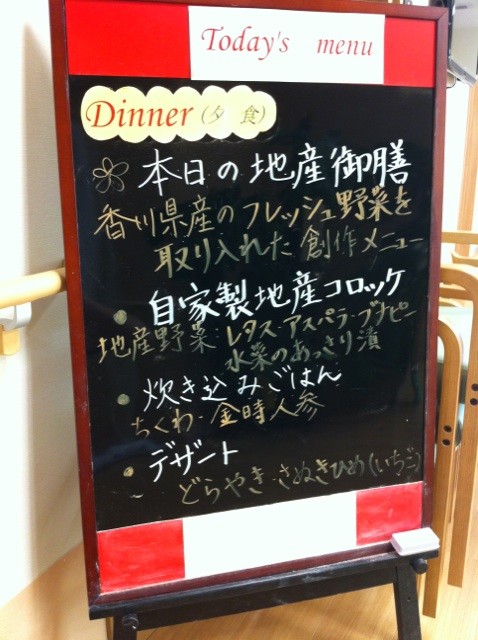 Today's menu
Dinner (夕食)
本日の地産御膳
香川県産のフレッシュ野菜を
取り入れた 創作メニュー
・自家製地産コロッケ
地産野菜 レタス・アスパラ・ブナピー
水菜のあっさり漬
・炊き込みごはん
ちくわ・金時人参
・デザート
どらやき・さぬきひめ(いちご)